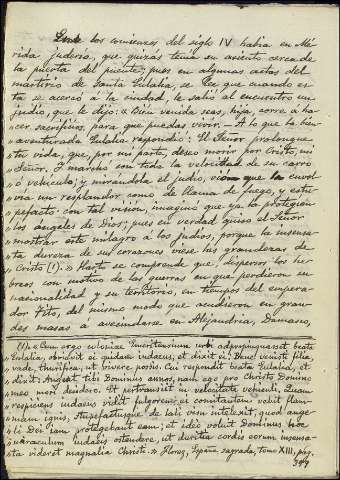 Desde los comienzos del siglo IV habia en Mé-
rida judería, que quizás tenia su asiento cerca de
la puerta del puente; pues en algunas actas del
martirio de Santa Eulalia, se lee que cuando es-
ta se acercó a la ciudad, le salió al encuentro un
judio, que le dijo: « Bien venida seas, hija, corre á ha-
cer sacrificios, para que puedas vivir. — Á lo que la bien-
aventurada Eulalia respondió: El Señor prolongue
tu vida, que, por mi parte, deseo morir por Cristo, mi
Señor. Y marchó con toda la velocidad de su carro
ó vehiculo; y mirandola el judio, vió que la envol-
via un resplandor, como de llama de fuego, y estu-
pefacto con tal visión, imaginó que ya la protegían
los angeles de Dios; pues en verdad quiso el Señor
mostrar este milagro á los judios, porque la insensa-
ta dureza de sus corazones viese las grandezas de
Cristo (1). » Harto se comprende que dispersos los he-
breos con motivo de la guerra en que perdieron su
nacionalidad y su territorio, en tiempos del empera-
dor Tito, del mismo modo que acudieron en gran-
des masas á avecindarse en Alejandria, Damasco,
(1). « Cum ergo coloniae Emeritensium urbi adpropinquasset beata
Eulalia, obvidit ei quidam iudaeus, et dixit ei: Bene veneris filia,
vade, thurifica, ut vivere possis. Cui respondit beata Eulalia, et
dixit: Augeat tibi Dominus annos, nam ego pro Christo Domino
meo mori desidero. Et pertransiit in velocitate vehiculi. Quam
respiciens iudaeus vidit fulgorem ei comitantem velut flam-
mam ignis. Stupefactusque de tali visu intelexit, quod ange-
li Dei iam protegebant eam; et ideó voluit Dominus hoc
miraculum iudaeis ostendere, ut duritia cordis eorum insensa-
ta videret magnalia Christi. » Florez, España sagrada, tomo XIII, pag.
399